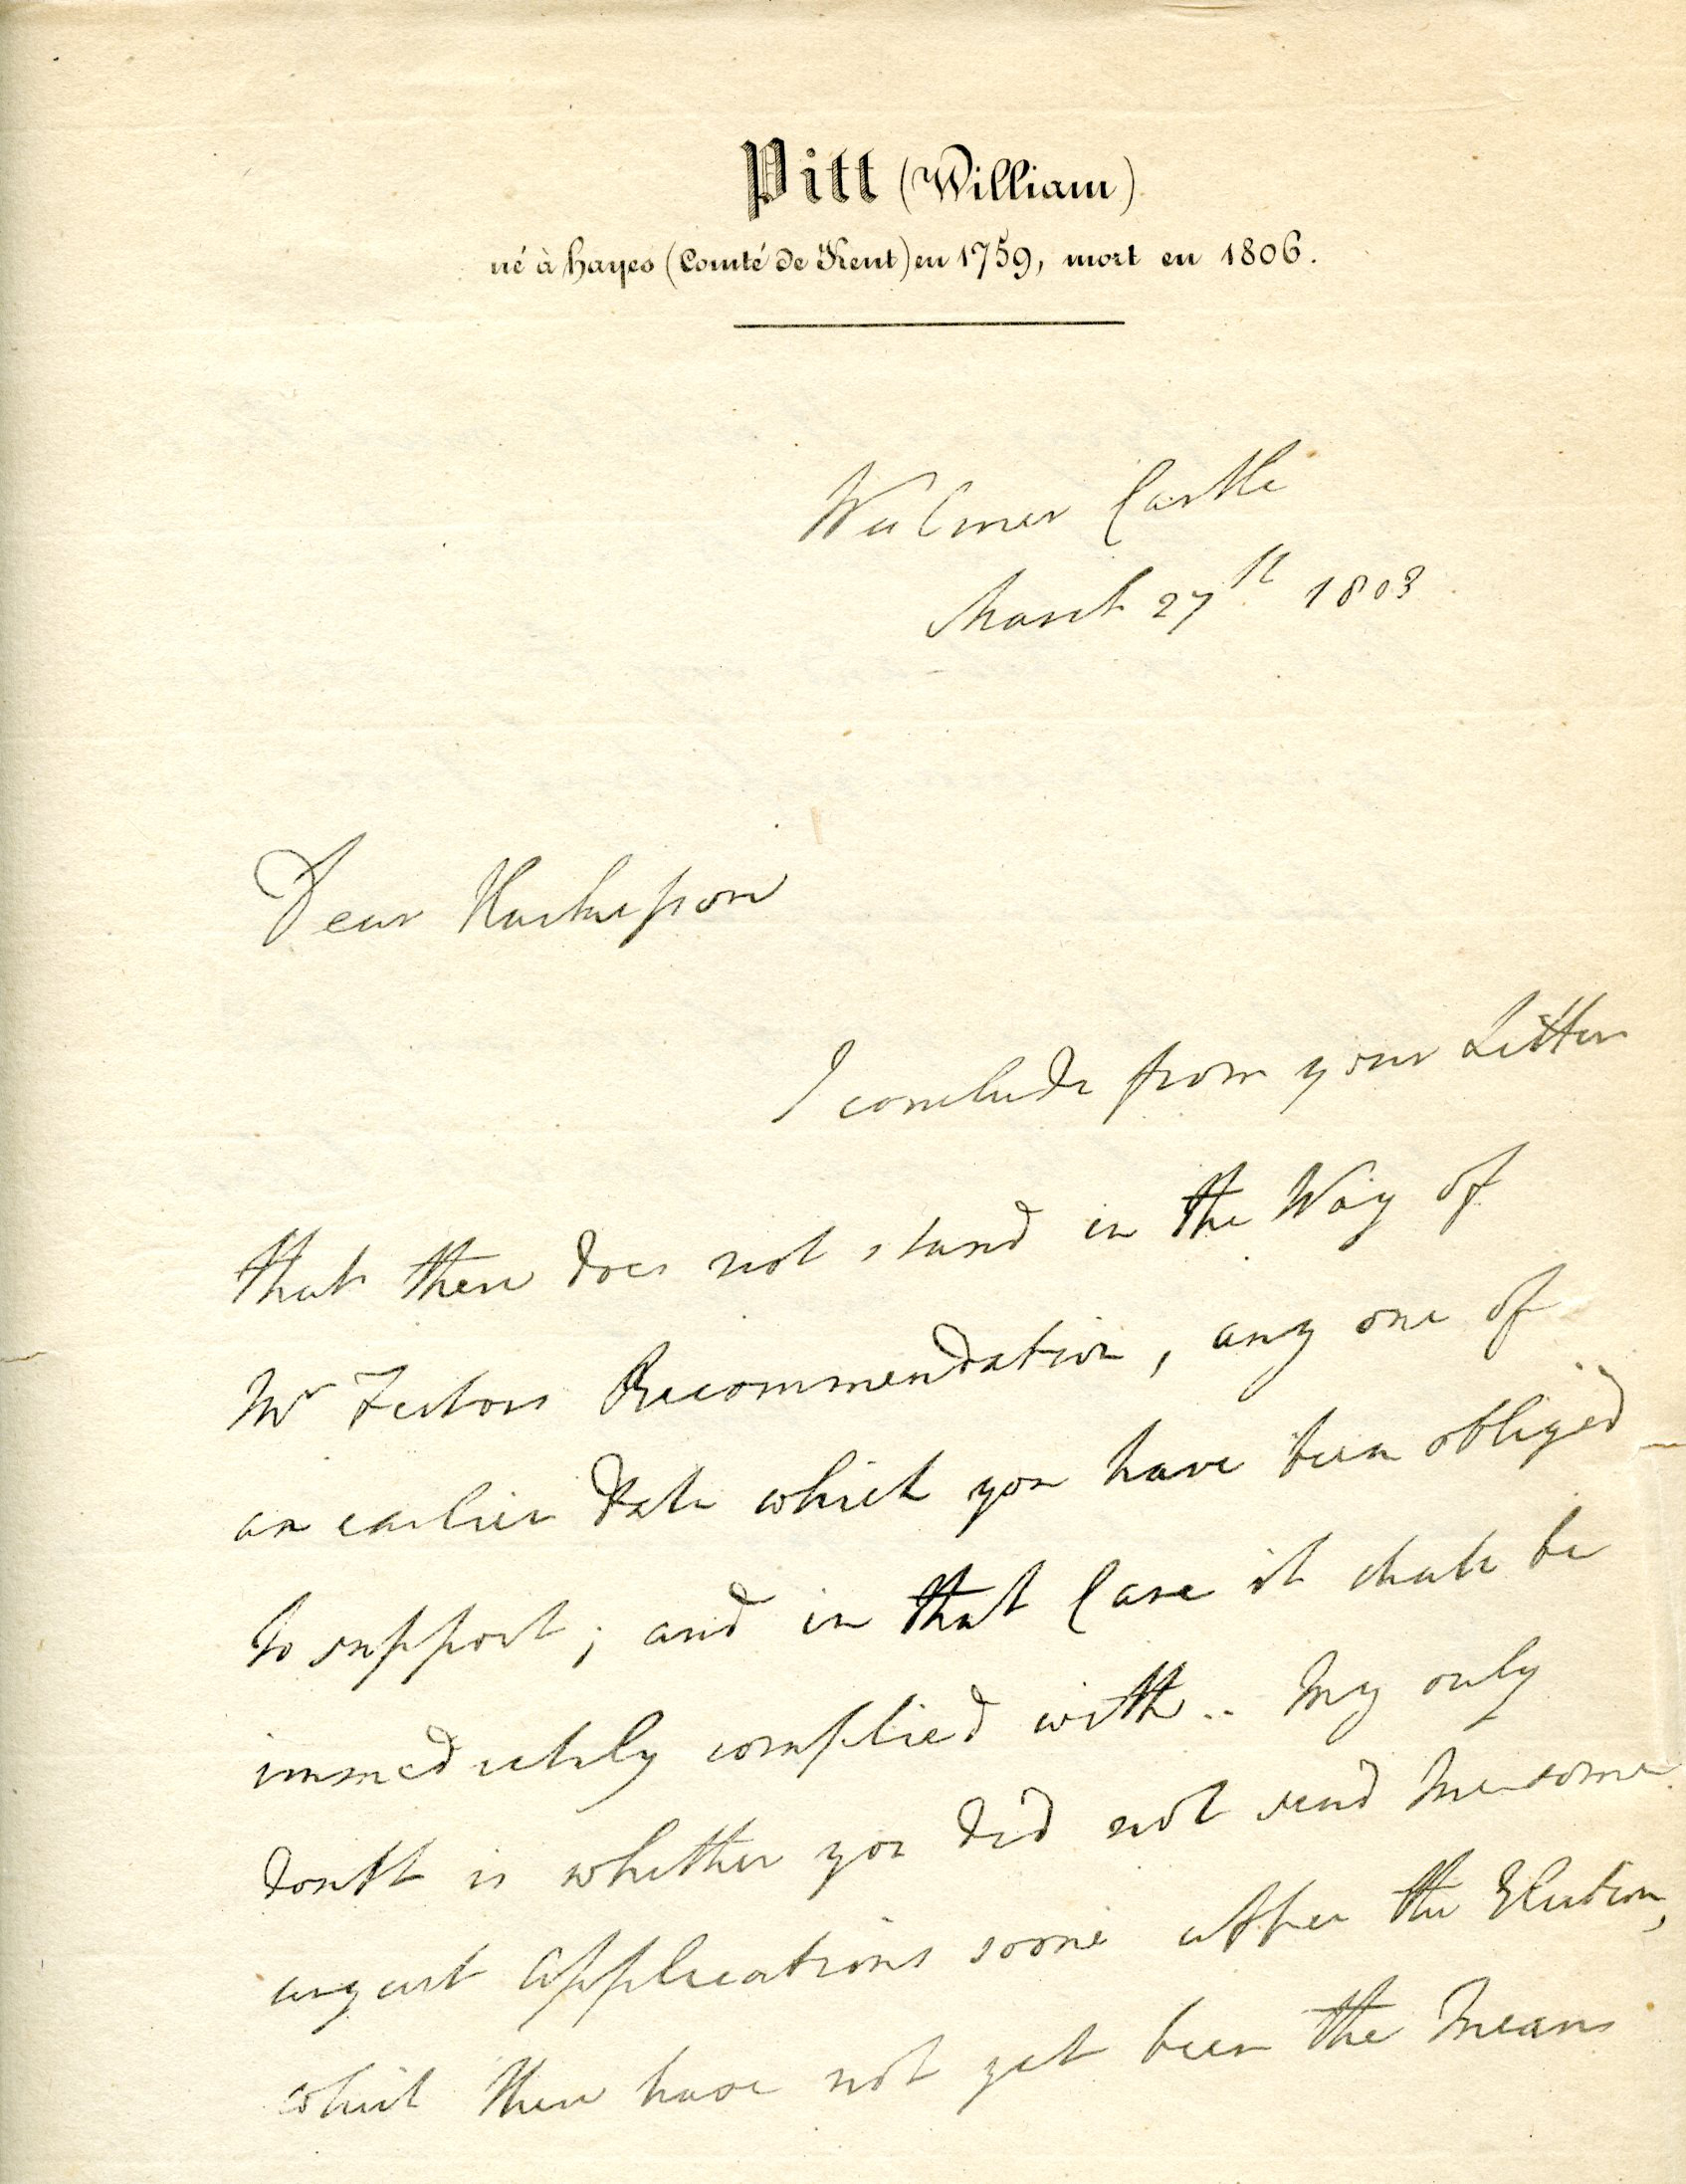 Pitt (William)
né à hayes (Comté de Kent) en 1759, mort en 1806.
Walmer Castle
March 27th 1803
Dear Huskisson
I conclude from your Letter
that there does not stand in the Way of
Mr Recommendation, any one of
an earlier Date which you have been obliged
to support; and in that Case it shall be
immediately complied with.. My only
doubt is whether you did not send me some
urgent applications soone after the Election,
which there have not yet been the Means